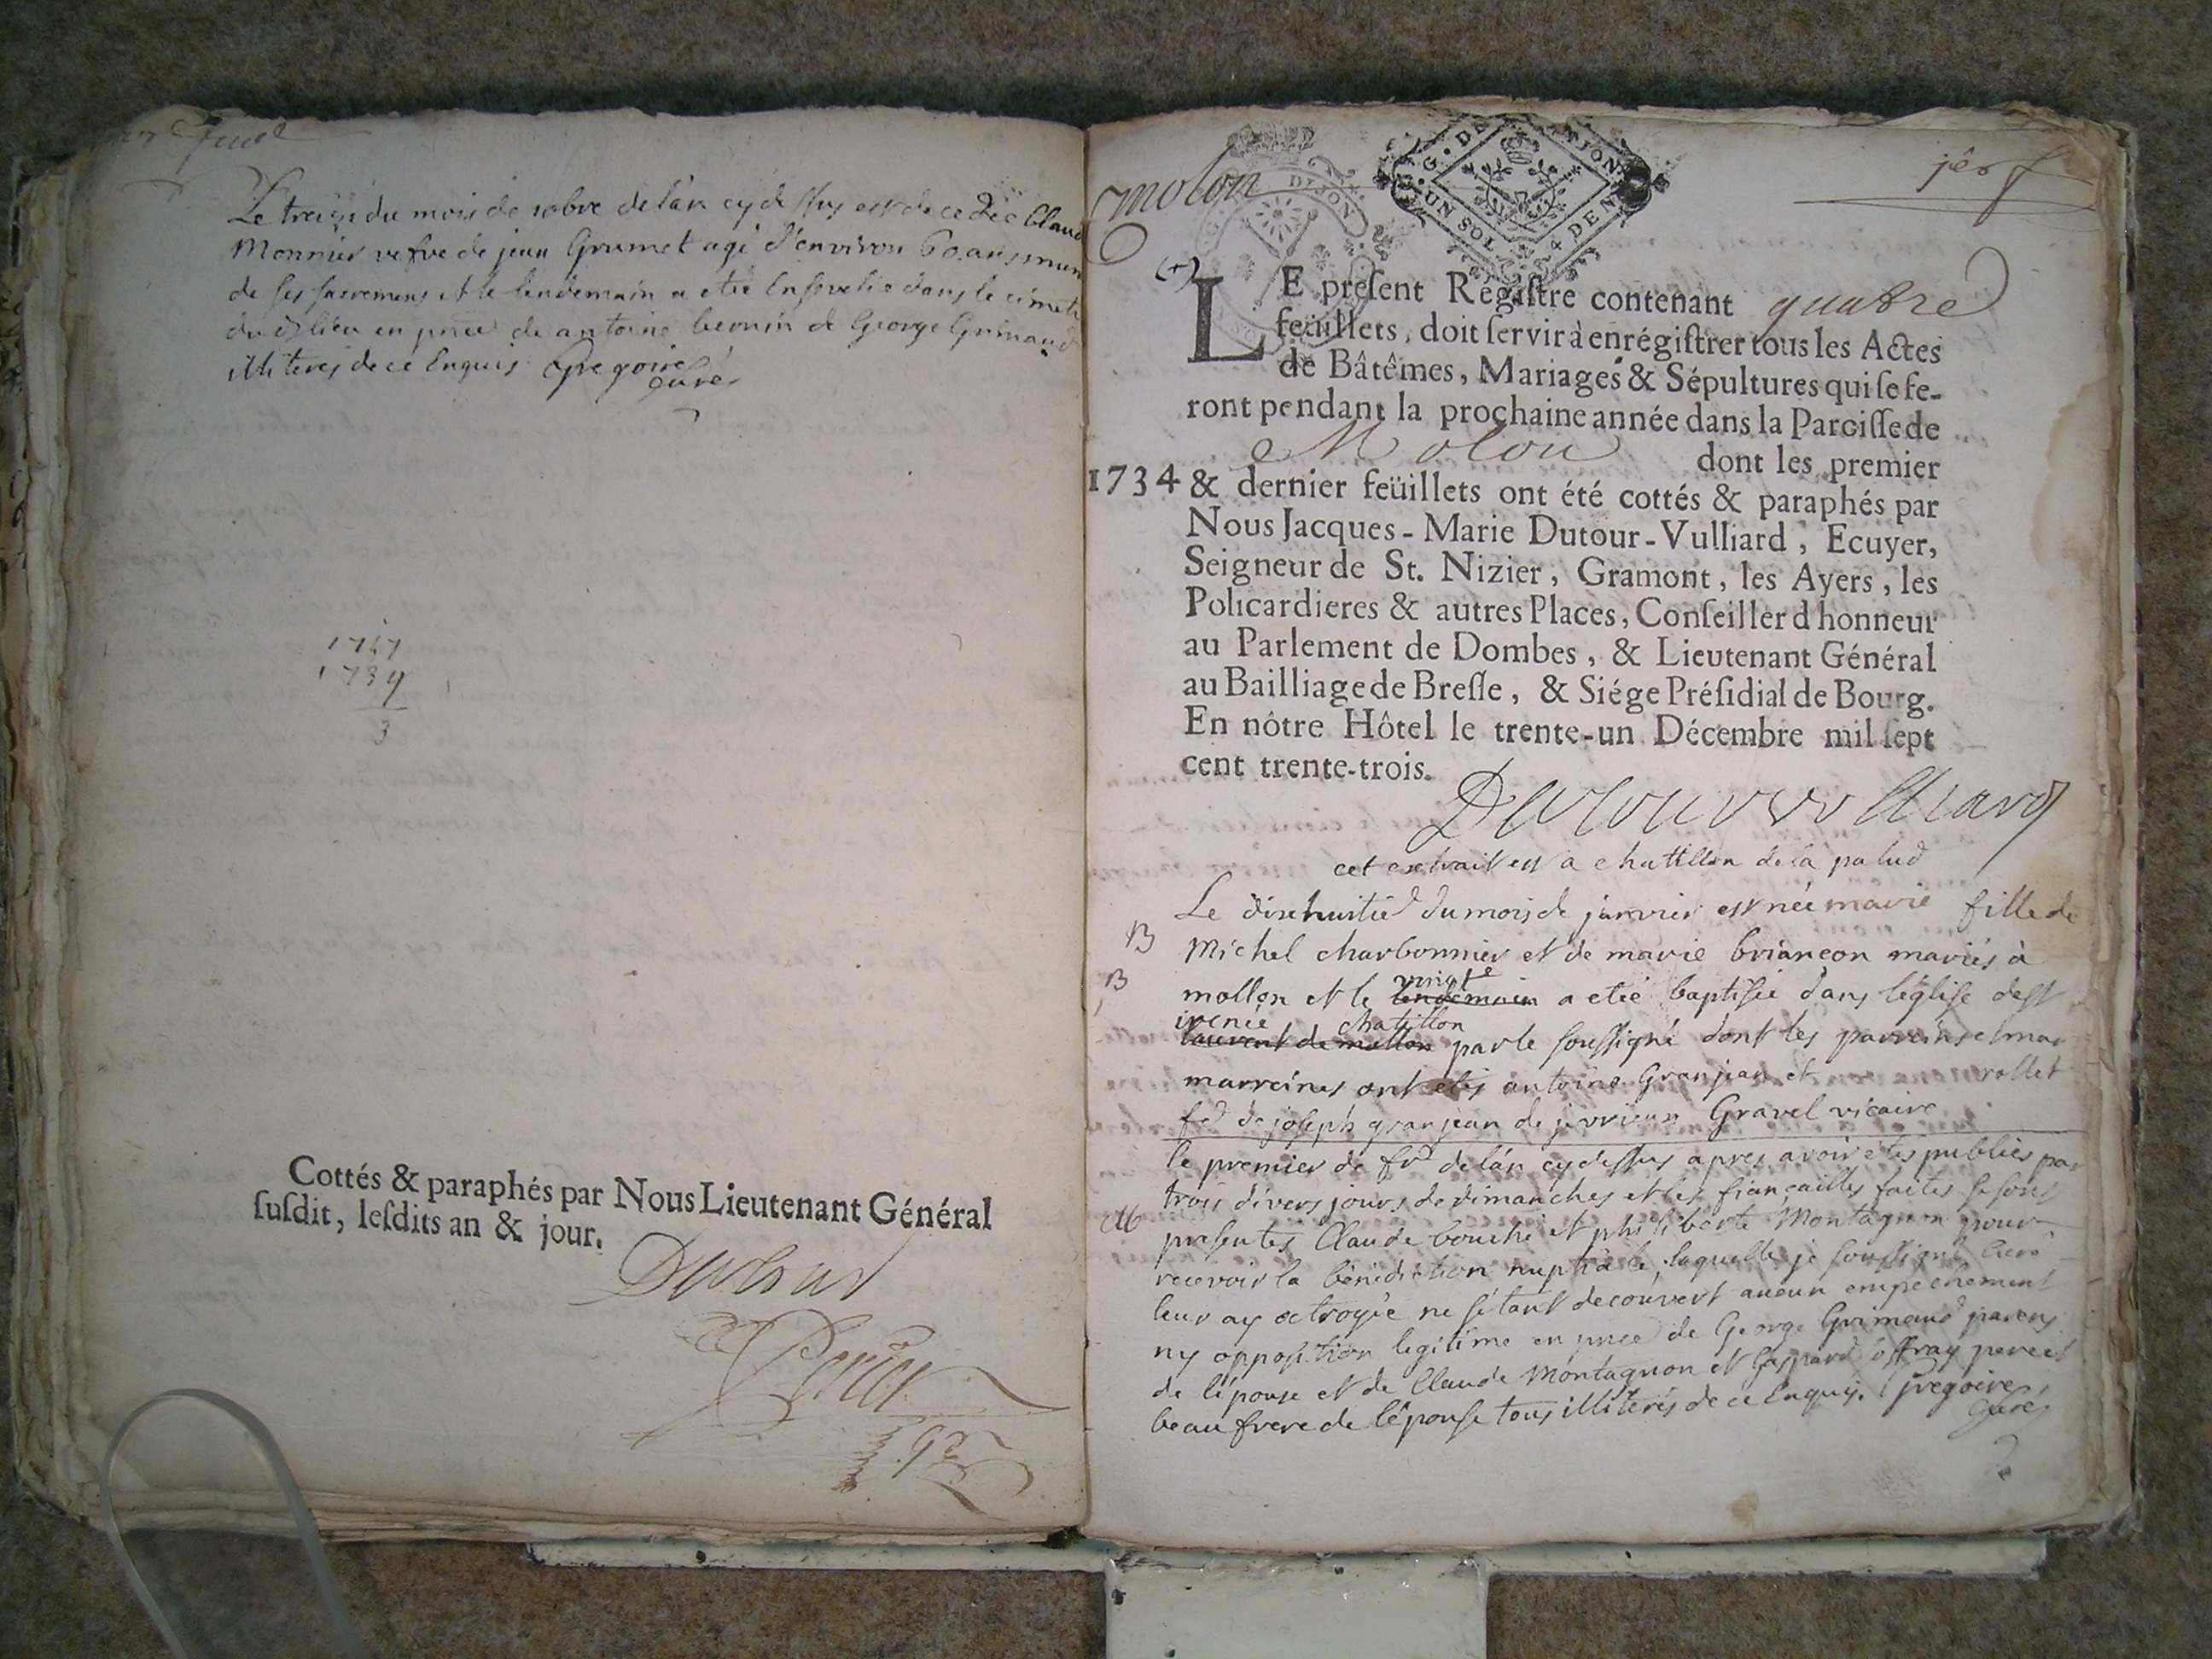 Le treize du mois de xobre de lán cy dessus est decedée Claud
Monnier vefve de jean Grumet agé d'environ 60. ans mun
de ses sacremens et le lendemain a eté Ensevelie dans le cimeti
dud lieu en pnce de antoine bernin et George Grimaud
illiterés de ce Enquis Gregoire
curé
1747
1734
3
Cottés & paraphés par Nous Lieutenant Général
susdit, lesdits an & jour.
Dutour
molon
DIJON
G. DE
UN SOL 4 DEN
LE present Régistre contenant quatre
feüillets, doit servir à enrégistrer tous les Actes
de Bâtêmes, Mariages & Sépultures qui se fe-
ront pendant la prochaine année dans la Paroisse de
Molon dont les premier
1734 & dernier feüillets ont été cottés & paraphés par
Nous Jacques-Marie Dutour-Vulliard, Ecuyer,
Seigneur de St. Nizier, Gramont, les Ayers, les
Policardieres & autres Places, Conseiller d honneur
au Parlement de Dombes, & Lieutenant Général
au Bailliage de Bresse, & Siége Présidial de Bourg.
En nôtre Hôtel le trente-un Décembre mil sept
cent trente-trois.
Dutour vulliard
cet extrait est a chatillon de la palud
Le dixhuitie du mois de janvier est née marie fille de
B Michel charbonnier et de marie briançon mariés à
B mollon et le lendemain vingte a eteé baptisée dans léglise dest
irenée chatillon
laurent de mollon par le soussigné dont les parreins et mar
marreines ont etés antoine Granjean et rollet
fe de joseph granjean de jevrieux Gravel vicaire
le premier de fvr de lán cy dessus apres avoir etés publiés par
trois divers jours de dimanches et les fiançailles faites se sont
M presentés Claude bouché et philiberte Montagnon pour
recevoir la bénédiction nuptiale, laquelle je soussigné Curé
leur ay octroyée ne sétant decouvert aucun empechement
ny opposition legitime en pnce de George Grimaud parens
de lépouse et de Claude Montagnon et Gaspard offray pere et
beaufrere de lépouse tous illiterés de ce Enquis. Gregoire
Curé